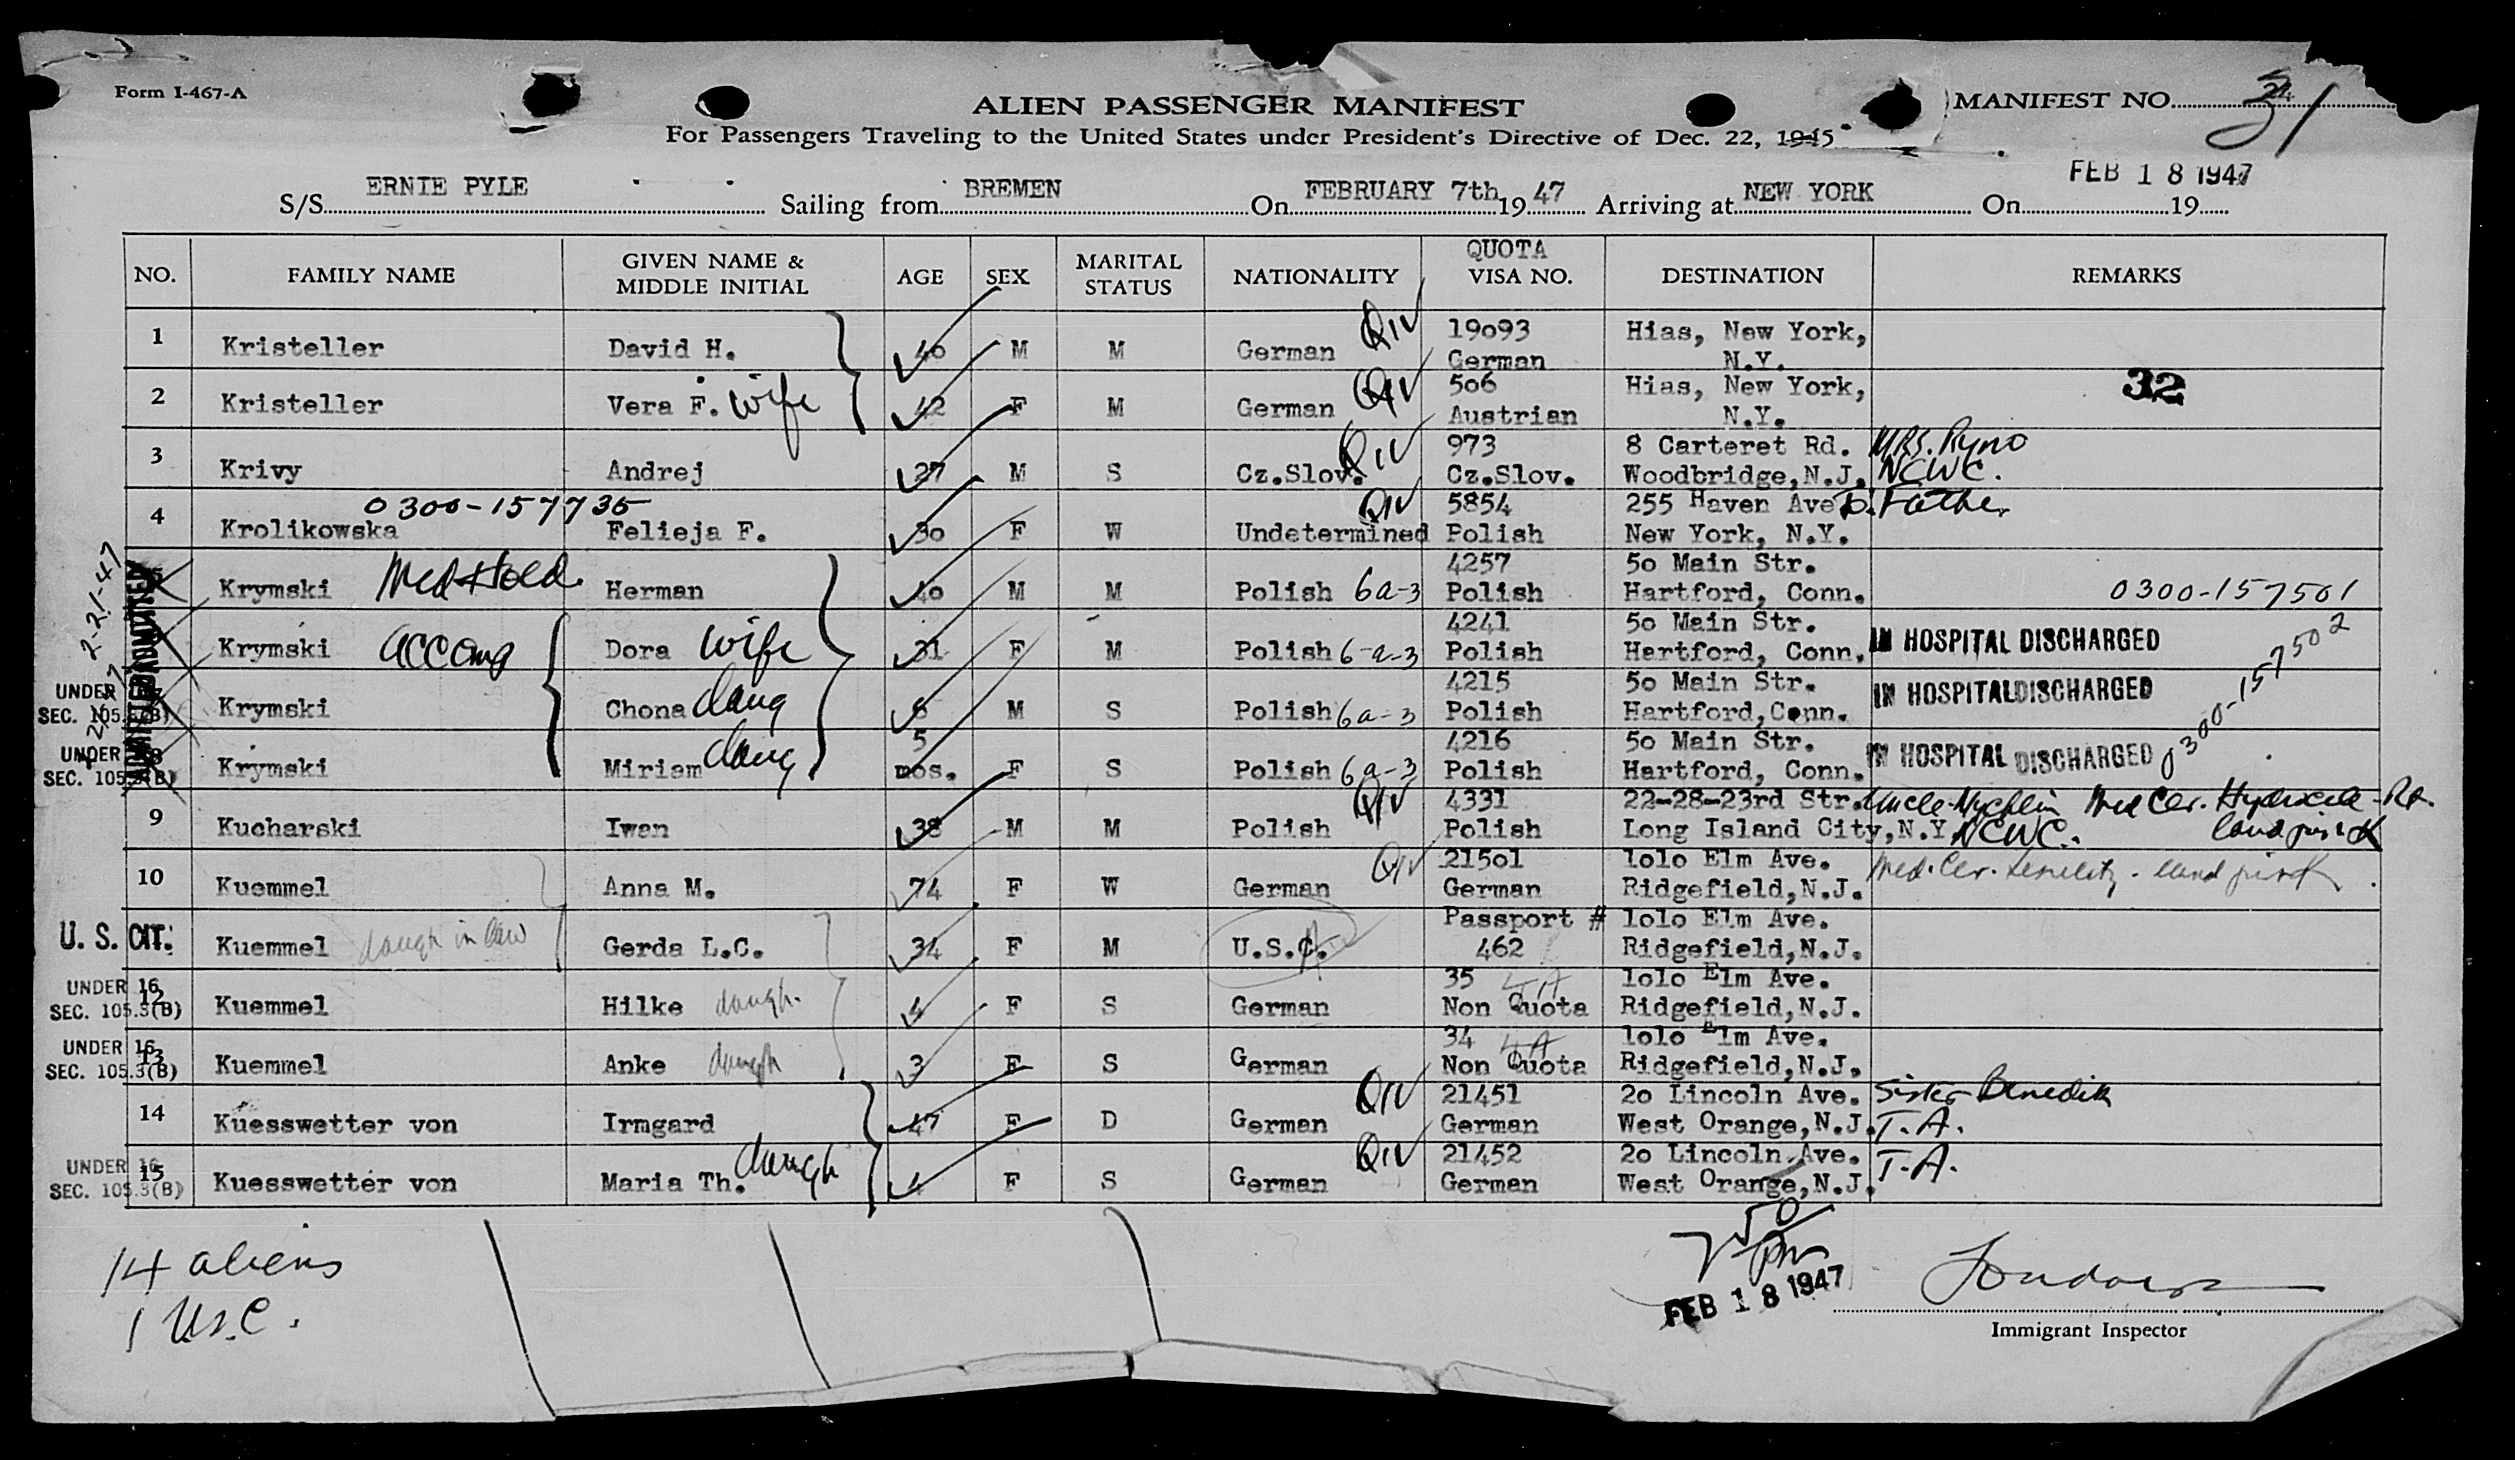 Form I-467-A
ALIEN PASSENGER MANIFEST
MANIFEST NO. 31
For Passengers Traveling to the United States under President's Directive of Dec. 22, 1945
FEB 18 1947
S/S ERNIE PYLE Sailing from BREMEN On FEBRUARY 7th 19 47 Arriving at NEW YORK On 19
NO. FAMILY NAME GIVEN NAME & MIDDLE INITIAL AGE SEX MARITAL STATUS NATIONALITY QUOTA VISA NO. DESTINATION REMARKS
1 Kristeller David H. 40 M M German QIV 19093 German Hias, New York, N.Y.
2 Kristeller Vera F. wife 42 F M German QIV 506 Austrian Hias, New York, N.Y. 32
3 Krivy Andrej 27 M S Cz.Slov. QIV 973 Cz.Slov. 8 Carteret Rd. Woodbridge, N.J. MRS. Ryno NCWC.
4 Krolikowska 0300-157735 Felieja F. 30 F W Undetermined QIV 5854 Polish 255 Haven Ave New York, N.Y. Father
Krymski Med Hold Herman 40 M M Polish 6a-3 4257 Polish 50 Main Str. Hartford, Conn. 0300-157501
Krymski accomp Dora wife 31 F M Polish 6-a-3 4241 Polish 50 Main Str. Hartford, Conn. IN HOSPITAL DISCHARGED
UNDER SEC. 105.3(B) Krymski Chona daug 6 M S Polish 6a-3 4215 Polish 50 Main Str. Hartford, Conn. IN HOSPITAL DISCHARGED
UNDER SEC. 105.3(B) 8 Krymski Miriam daug 5 mos. F S Polish 6a-3 4216 Polish 50 Main Str. Hartford, Conn. IN HOSPITAL DISCHARGED 0300-157502
ADMITTED 2-21-47
9 Kucharski Iwan 38 M M Polish QIV 4331 Polish 22-28-23rd Str. Long Island City, N.Y. Uncle NCWC. Med Cer. Hydrocele - Rt.
10 Kuemmel Anna M. 74 F W German QIV 21501 German 1010 Elm Ave. Ridgefield, N.J. Med. Cer. Senility
U. S. CIT. Kuemmel daugh in law Gerda L.C. 34 F M U.S.C. Passport # 462 1010 Elm Ave. Ridgefield, N.J.
UNDER 16 SEC. 105.3(B) 12 Kuemmel Hilke daugh. 4 F S German 35 4A Non Quota 1010 Elm Ave. Ridgefield, N.J.
UNDER 16 SEC. 105.3(B) 13 Kuemmel Anke daugh 3 F S German 34 4A Non Quota 1010 Elm Ave. Ridgefield, N.J.
14 Kuesswetter von Irmgard 47 F D German QIV 21451 German 20 Lincoln Ave. West Orange, N.J. Sister Benedik T.A.
UNDER 16 SEC. 105.3(B) 15 Kuesswetter von Maria Th. daugh 4 F S German QIV 21452 German 20 Lincoln Ave. West Orange, N.J. T.A.
14 aliens
1 U.S.C.
FEB 18 1947
Immigrant Inspector